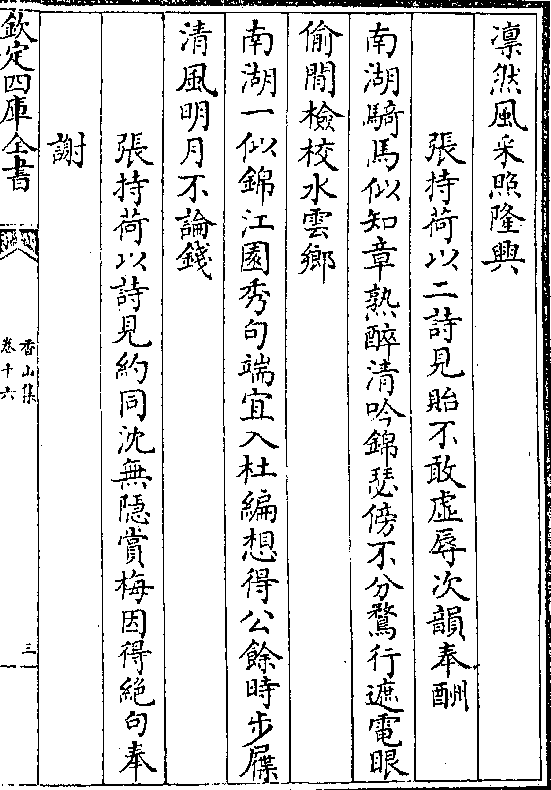 凛然風采照隆興
張持荷以二詩見貽不敢虛辱次韻奉酬
南湖騎馬似知章熟醉清吟錦瑟傍不分鵞行遮電眼
偷閒檢校水雲鄉
南湖一似錦江園秀句端宜入杜編想得公餘時步屧
清風明月不論錢
張持荷以詩見約同沈無隱賞梅因得絕句奉
謝
欽定四庫全書
香山集
卷十六
三